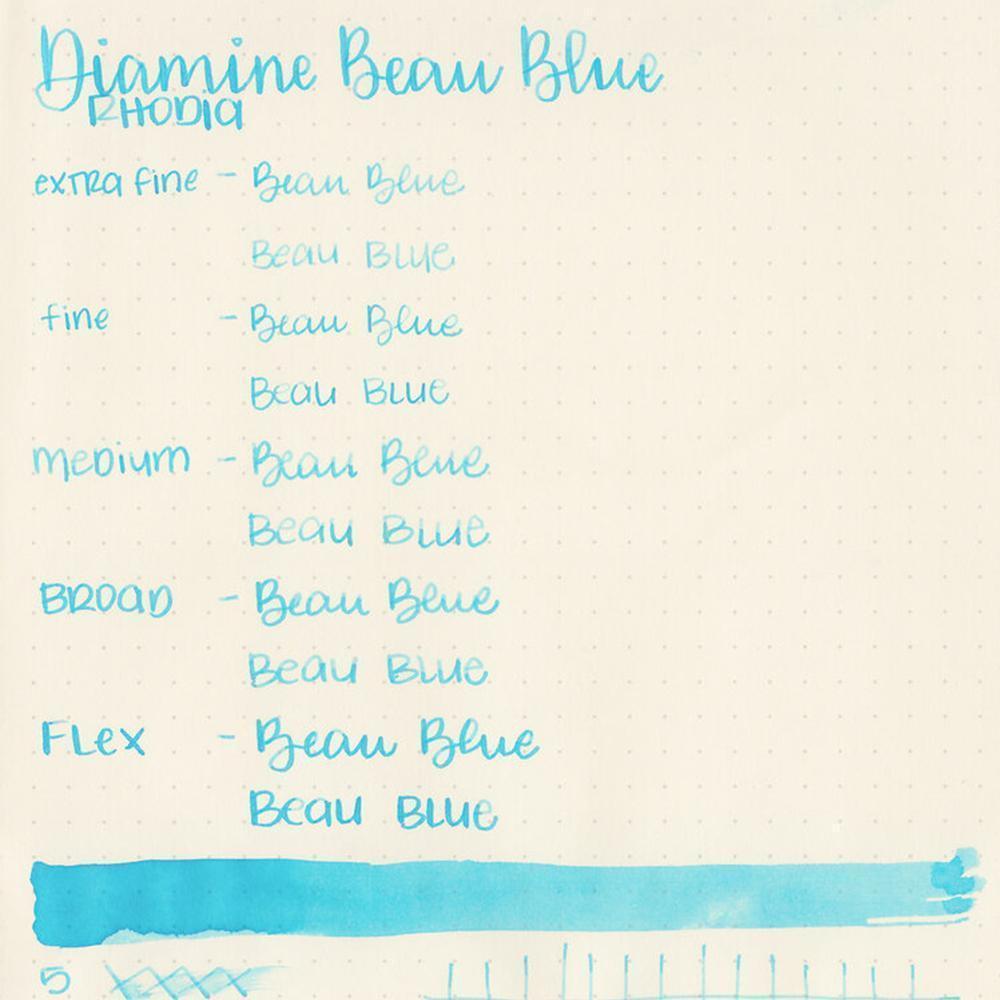 Diamine Beau Blue
RHODIA
exTRa fine - Beau Blue
Beau BLUe
fine - Beau Blue
Beau BLUe
meDium - Beau Blue
Beau BLUe
BROaD - Beau Blue
Beau BLUe
FLex - Beau Blue
Beau BLUe
5